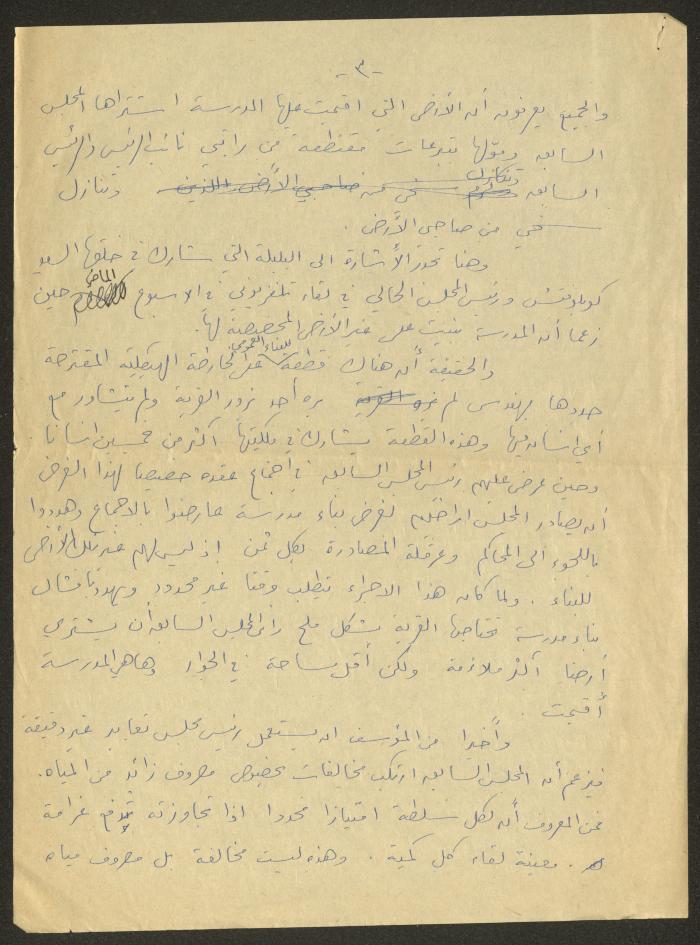 -٣-
والجميع يعرفون أن الأرض التي اقيمت عليها المدرسة اشتراها المجلس
السابق وموّلها تبرعات مقتطعة من راتبي نائب الرئيس والرئيس
السابق وتنازل سخي من صاحبي الأرض والذين وتنازل
سخي من صاحبي الأرض.
وهنا تجدر الأشارة الى البلبلة التي شارك في خلقها السيد
ورئيس المجلس الحالي في لقاء تلفزيوني في الاسبوع الماضي حين
زعما أن المدرسة بنيت على غير الأرض المخصصة لها.
والحقيقة أن هناك قطعة للبناء العمومي على الخارطة الهيكلية المقترحة
حددها مهندس لم يره أحد يزور القرية ولم يتشاور مع
أي انسان فيها وهذه القطعة يشارك في ملكيتها أكثر من خمسين انسانا
وحين عرض عليهم رئيس المجلس السابق في اجتماع عقده خصيصا لهذا الغرض
أن يصادر المجلس اراضيهم لغرض بناء مدرسة عارضوا بالاجماع وهددوا
باللجوء الى المحاكم وعرقلة المصادرة بكل ثمن اذ ليس لهم غير تلك الأرض
للبناء. ولما كان هذا الاجراء يتطلب وقتا غير محدود ويهدد بافشال
بناء مدرسة تحتاجها القرية بشكل ملح رأى المجلس السابق أن يشتري
أرضا أكثر ملاءمة ولكن أقل مساحة في الجوار وها هي المدرسة
أقيمت.
وأخيرا من المؤسف ان يستعمل رئيس مجلس تعابير غير دقيقة
فيزعم أن المجلس السابق ارتكب مخالفات بخصوص مصروف زائد من المياه.
فمن المعروف أن لكل سلطة امتيازا محددا اذا تجاوزته تدفع غرامة
معينة لقاء كل كمية. وهذه ليست مخالفة بل مصروف مياه